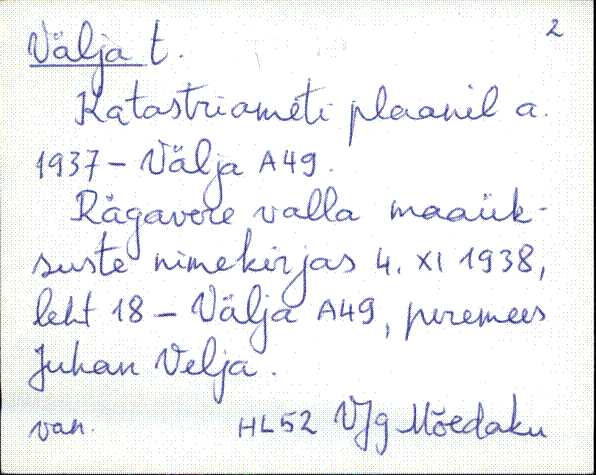 2
Välja t.
Katastriameti plaanil a.
1937 – Välja A49.
Rägavere valla maaük-
suste nimekirjas 4. XI 1938,
leht 18 – Välja A49, peremees
Juhan Velja.
van. HL52 VJg Mõedaku